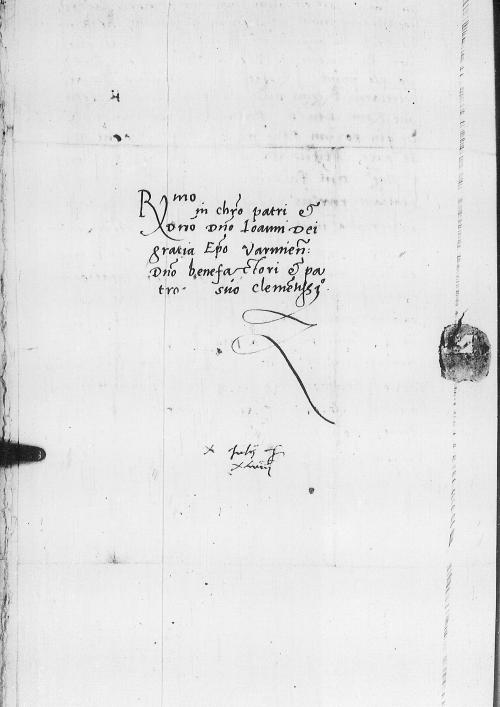 R mo
in chro patri et
Dno Dno Ioanni Dei
gratia Epo Varmien:
Dno benefactori et pa
tro- suo clemetissio.
x Julij
xlviij